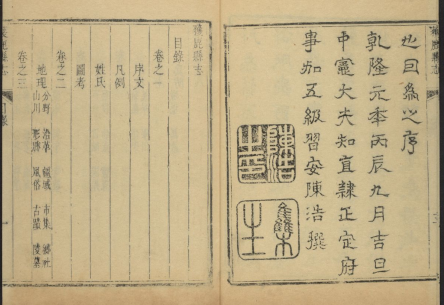 也因為之序
乾隆元年丙辰九月吉旦
中憲大夫知直隸正定府
事加五級習安陳浩撰
獲鹿縣志
目錄
卷之一
序文
凡例
姓氏
圖考
卷之二
地理 分野 沿革 疆域 市集 鄉社
山川 形勝 風俗 古蹟 陵墓
卷之三